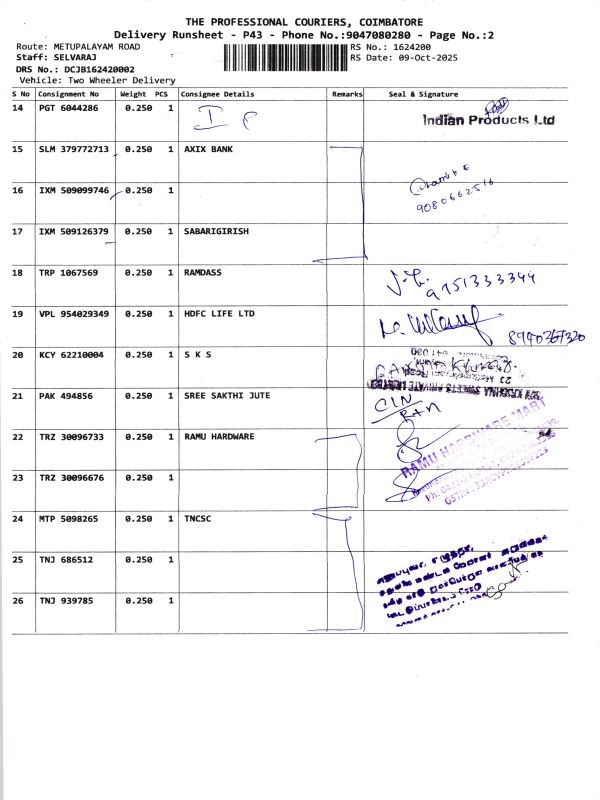 THE PROFESSIONAL COURIERS, COIMBATORE
Delivery Runsheet - P43 - Phone No.:9047080280 - Page No.:2
Route: METUPALAYAM ROAD
RS No.: 1624200
Staff: SELVARAJ
RS Date: 09-Oct-2025
DRS No.: DCJB162420002
Vehicle: Two Wheeler Delivery
S No Consignment No Weight PCS Consignee Details Remarks Seal & Signature
14 PGT 6044286 0.250 1 Indian Products Ltd
15 SLM 379772713 0.250 1 AXIX BANK
16 IXM 509099746 0.250 1
9080662516
17 IXM 509126379 0.250 1 SABARIGIRISH
18 TRP 1067569 0.250 1 RAMDASS 9751333344
19 VPL 954029349 0.250 1 HDFC LIFE LTD
20 KCY 62210004 0.250 1 S K S
21 PAK 494856 0.250 1 SREE SAKTHI JUTE
22 TRZ 30096733 0.250 1 RAMU HARDWARE RAMU HARDWARE MART
23 TRZ 30096676 0.250 1
24 MTP 5098265 0.250 1 TNCSC
25 TNJ 686512 0.250 1
26 TNJ 939785 0.250 1